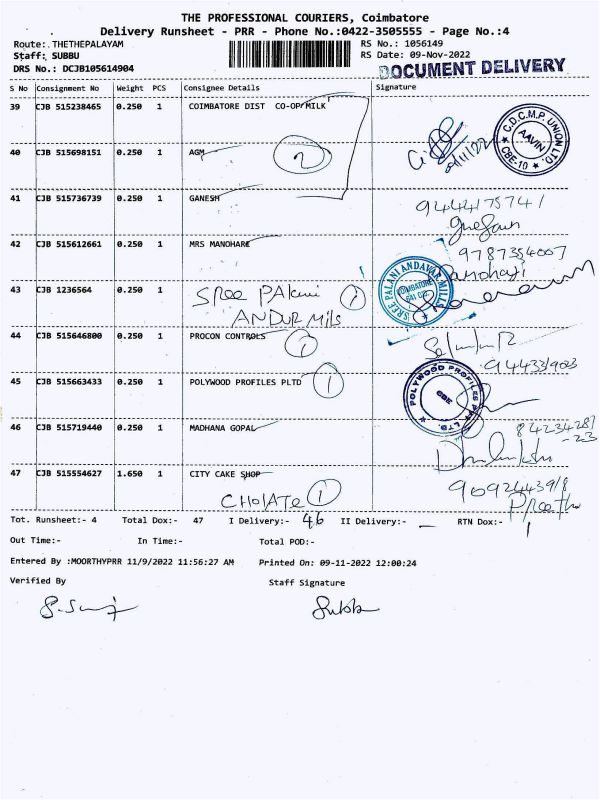 THE PROFESSIONAL COURIERS, Coimbatore
Delivery Runsheet - PRR - Phone No.:0422-3505555 - Page No.:4
Route: THETHEPALAYAM RS No.: 1056149
Staff: SUBBU RS Date: 09-Nov-2022
DRS No.: DCJB105614904 DOCUMENT DELIVERY
S No Consignment No Weight PCS Consignee Details Signature
39 CJB 515238465 0.250 1 COIMBATORE DIST CO-OP/MILK
C.D.C.M.P. UNION LTD. AAVIN CBE-10
40 CJB 515698151 0.250 1 AGM 2
41 CJB 515736739 0.250 1 GANESH
42 CJB 515612661 0.250 1 MRS MANOHARE 9787354007
43 CJB 1236564 0.250 1 SREE PAlani 1
ANDUR Mils
SREE PALANI ANDAVAR MILLS COIMBATORE
44 CJB 515646800 0.250 1 PROCON CONTROLS 1
45 CJB 515663433 0.250 1 POLYWOOD PROFILES PLTD 1
POLYWOOD PROFILES PVT. LTD. CBE
46 CJB 515719440 0.250 1 MADHANA GOPAL
47 CJB 515554627 1.650 1 CITY CAKE SHOP
CHOlATE 1 Preetha
Tot. Runsheet:- 4 Total Dox:- 47 I Delivery:- 46 II Delivery:- — RTN Dox:- 1
Out Time:- In Time:- Total POD:-
Entered By :MOORTHYPRR 11/9/2022 11:56:27 AM Printed On: 09-11-2022 12:00:24
Verified By Staff Signature
Subbu